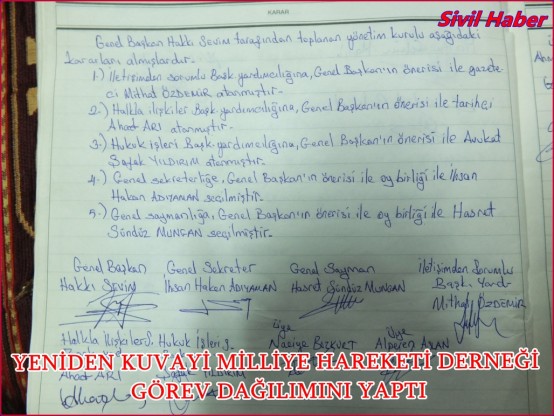 KARAR
Sivil Haber
Genel Başkan Hakkı Sevim tarafından toplanan yönetim kurulu aşağıdaki
kararları almışlardır.
1-) İletişimden Sorumlu Başk. yardımcılığına, Genel Başkan'ın önerisi ile gazete-
ci Mithat ÖZDEMİR atanmıştır.
2-) Halkla ilişkiler Başk. yardımcılığına, Genel Başkan'ın önerisi ile tarihçi
Ahad ARI atanmıştır.
3-) Hukuk işleri Başk. yardımcılığına, Genel Başkan'ın önerisi ile Avukat
Şafak YILDIRIM atanmıştır.
4-) Genel sekreterliğe, Genel Başkan'ın önerisi ile oy birliği ile İhsan
Hakan ADIYAMAN seçilmiştir.
5-) Genel saymanlığa, Genel Başkan'ın önerisi ile oy birliği ile Hasret
Gündüz MUNGAN seçilmiştir.
Genel Başkan Genel Sekreter Genel Sayman İletişimden Sorumlu
Hakkı SEVİM İhsan Hakan ADIYAMAN Hasret Gündüz MUNGAN Başk. Yard.
Mithat ÖZDEMİR
Halkla İlişkiler Hukuk İşleri Üye Üye
Naciye BOZKURT Alperen
YENİDEN KUVAYİ MİLLİYE HAREKETİ DERNEĞİ
Ahad ARI YILDIRIM
GÖREV DAĞILIMINI YAPTI